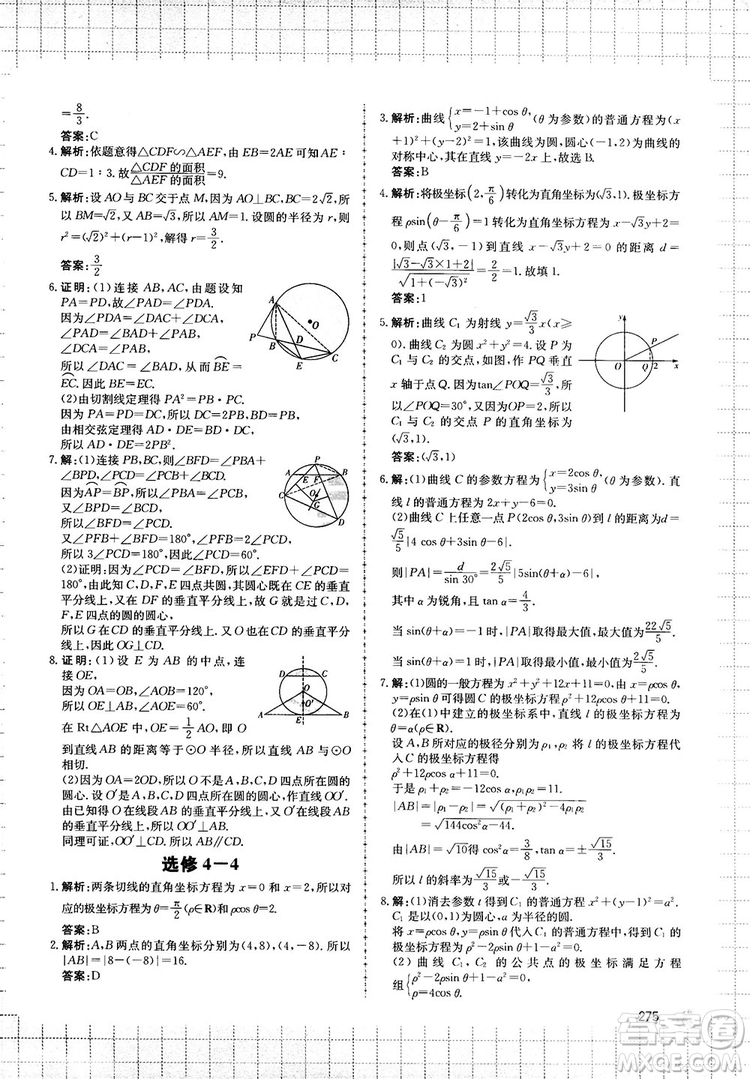 =8/3.
答案:C
4. 解析:依题意得△CDF∽△AEF,由 EB=2AE 可知 AE:
CD=1:3.故△CDF的面积/△AEF的面积=9.
5. 解析:设 AO 与 BC 交于点 M,因为 AO⊥BC,BC=2√2,所
以 BM=√2,又 AB=√3,所以 AM=1.设圆的半径为 r,则
r²=(√2)²+(r-1)²,解得 r=3/2.
答案:3/2
6. 证明:(1)连接 AB,AC,由题设知
PA=PD,故∠PAD=∠PDA.
因为∠PDA=∠DAC+∠DCA,
∠PAD=∠BAD+∠PAB,
∠DCA=∠PAB,
所以∠DAC=∠BAD,从而 BE=
EC.因此 BE=EC.
(2)由切割线定理得 PA²=PB·PC.
因为 PA=PD=DC,所以 DC=2PB,BD=PB.
由相交弦定理得 AD·DE=BD·DC,
所以 AD·DE=2PB².
7. 解:(1)连接 PB,BC,则∠BFD=∠PBA
+∠BPD,∠PCD=∠PCB+∠BCD.
因为AP=BP,所以∠PBA=∠PCB,
又∠BPD=∠BCD,
所以∠BFD=∠PCD.
又∠PFB+∠BFD=180°,∠PFB=2∠PCD,
所以 3∠PCD=180°,因此∠PCD=60°.
(2)证明:因为∠PCD=∠BFD,所以∠EFD+∠PCD=180°,
由此知 C,D,F,E 四点共圆,其圆心既在 CE 的垂直
平分线上,又在 DF 的垂直平分线上,故 G 就是过
C,D,F,E 四点的圆的圆心,
所以 G 在 CD 的垂直平分线上.又 O 也在 CD 的垂
直平分线上,因此 OG⊥CD.
8. 证明:(1)设 E 为 AB 的中点,连
接 OE,
因为 OA=OB,∠AOB=120°,
所以 OE⊥AB,∠AOE=60°.
在 Rt△AOE 中,OE=1/2AO,即 O
到直线 AB 的距离等于⊙O 半径,所以直线 AB 与⊙O
相切.
(2)因为 OA=2OD,所以 O 不是 A,B,C,D 四点所在圆的
圆心.设 O′是 A,B,C,D 四点所在圆的圆心,作直线 OO′.
由已知得 O 在线段 AB 的垂直平分线上,又 O′在线
段 AB 的垂直平分线上,所以 OO′⊥AB.
同理可证,OO′⊥CD.所以 AB∥CD.
选修 4-4
1. 解析:两条切线的直角坐标方程为 x=0 和 x=2,所以对
应的极坐标方程为 θ=π/2(ρ∈R)和 ρcos θ=2.
答案:B
2. 解析:A,B 两点的直角坐标分别为(4,8),(4,-8).所以
|AB|=|8-(-8)|=16.
答案:D
3. 解析:曲线{x=-1+cos θ, y=2+sin θ (θ 为参数)的普通方程为 (x
+1)²+(y-2)²=1,该曲线为圆,圆心(-1,2)为曲线
的对称中心,其在直线 y=-2x 上,故选 B.
答案:B
4. 解析:将极坐标(2,π/6)转化为直角坐标为(√3,1).极坐标方
程 ρsin(θ-π/6)=1 转化为直角坐标方程为 x-√3y+2=
0,则点(√3,1)到直线 x-√3y+2=0 的距离 d=
|√3-√3×1+2|/√(1+(-√3)²)=1.故填 1.
答案:1
5. 解析:曲线 C₁ 为射线 y=√3/3 x(x≥
0).曲线 C₂ 为圆 x²+y²=4.设 P 为
C₁ 与 C₂ 的交点,如图,作 PQ 垂直
x 轴于点 Q.因为 tan∠POQ=√3/3,所
以∠POQ=30°,又因为OP=2,所以
C₁ 与 C₂ 的交点 P 的直角坐标为
(√3,1).
答案:(√3,1)
6. 解:(1)曲线 C 的参数方程为{x=2cos θ, y=3sin θ (θ 为参数).直
线 l 的普通方程为 2x+y-6=0.
(2)曲线 C 上任意一点 P(2cos θ,3sin θ)到 l 的距离为 d=
√5/5|4cos θ+3sin θ-6|,
则|PA|=d/sin 30°=2√5/5|5sin(θ+α)-6|,
其中 α 为锐角,且 tan α=4/3.
当 sin(θ+α)=-1 时,|PA|取得最大值,最大值为22√5/5.
当 sin(θ+α)=1 时,|PA|取得最小值,最小值为2√5/5.
7. 解:(1)圆的一般方程为 x²+y²+12x+11=0,由 x=ρcos
θ,y=ρsin θ 可得圆 C 的极坐标方程 ρ²+12ρcos θ+11=0.
(2)在(1)中建立的极坐标系中,直线 l 的极坐标方程为 θ
=α(ρ∈R).
设 A,B 所对应的极径分别为 ρ₁,ρ₂ 将 l 的极坐标方程代
入 C 的极坐标方程得
ρ²+12ρcos α+11=0.
于是 ρ₁+ρ₂=-12cos α,ρ₁ρ₂=11.
|AB|=|ρ₁-ρ₂|=√((ρ₁+ρ₂)²-4ρ₁ρ₂)
=√(144cos²α-44).
由|AB|=√10得 cos²α=3/8,tan α=±√15/3.
所以 l 的斜率为√15/3或-√15/3.
8. 解:(1)消去参数 t 得到 C₁ 的普通方程 x²+(y-1)²=a².
C₁ 是以(0,1)为圆心,a 为半径的圆.
将 x=ρcos θ,y=ρsin θ 代入 C₁ 的普通方程中,得到 C₁ 的
极坐标方程为 ρ²-2ρsin θ+1-a²=0.
(2)曲线 C₁,C₂ 的公共点的极坐标满足方程
组{ρ²-2ρsin θ+1-a²=0, ρ=4cos θ.
275
答案圈
MXQE.COM